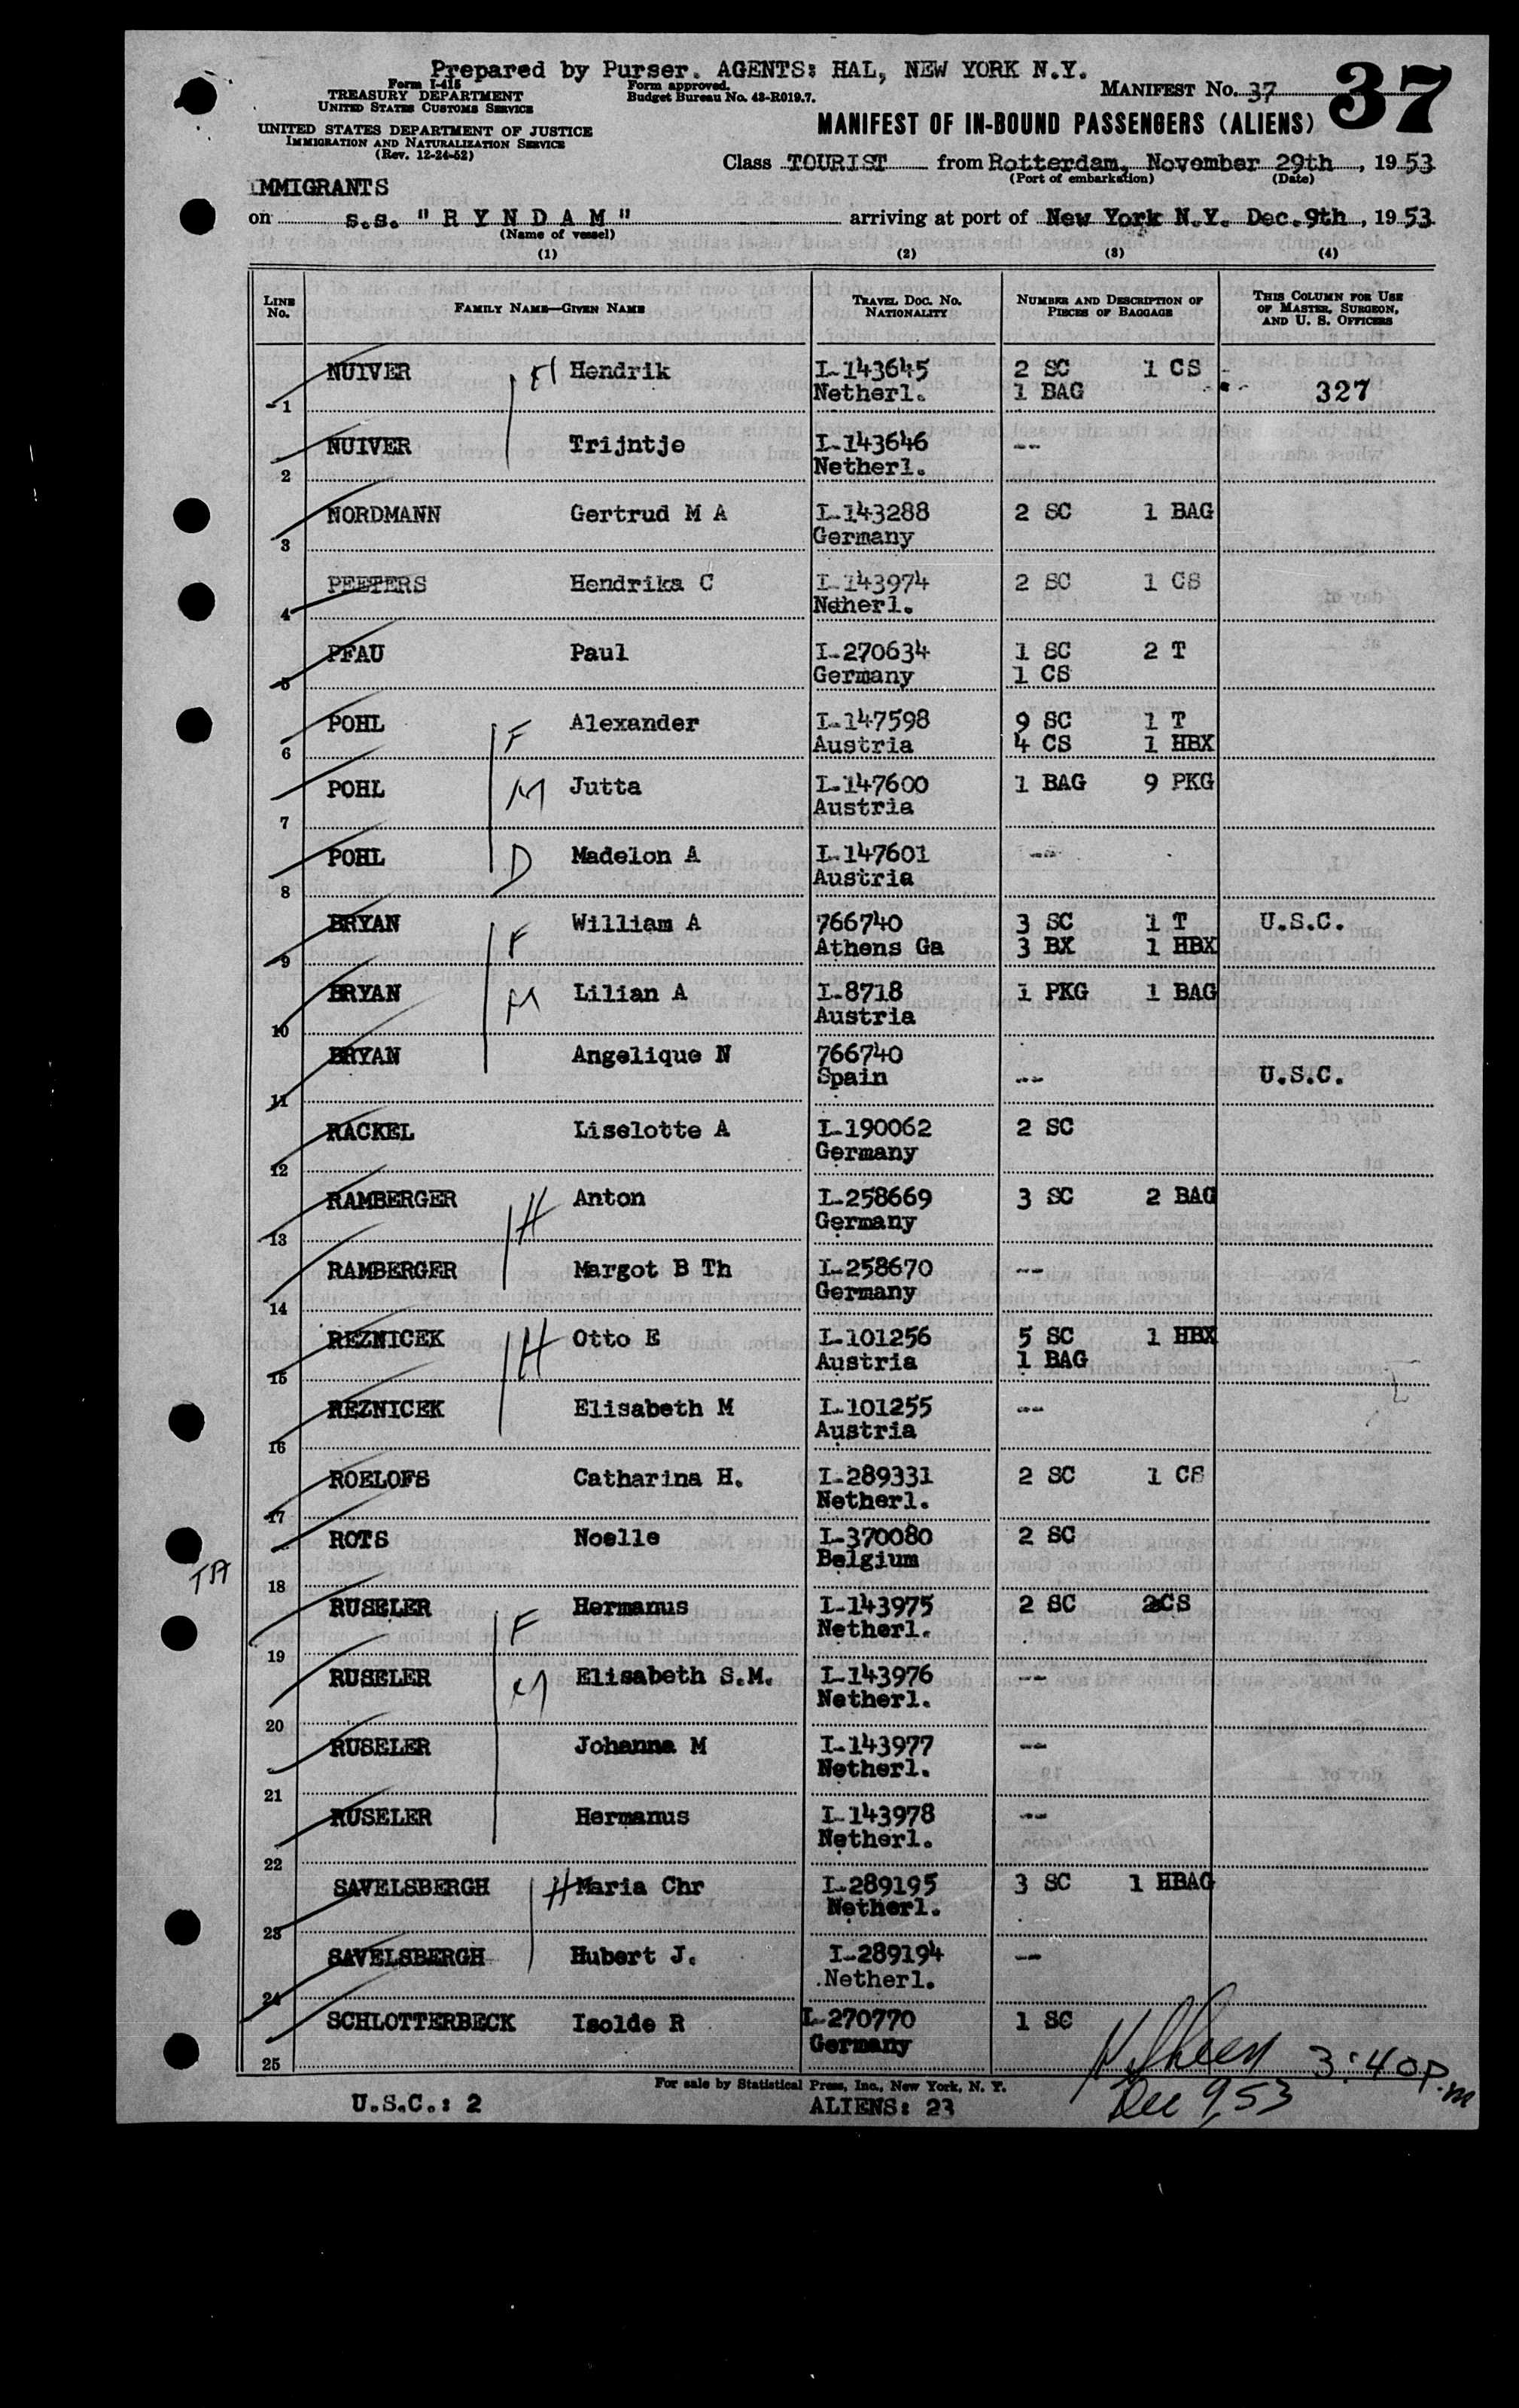 Prepared by Purser. AGENTS: HAL, NEW YORK N.Y.
Form I-415
TREASURY DEPARTMENT
UNITED STATES CUSTOMS SERVICE
Form approved.
Budget Bureau No. 43-R019.7.
MANIFEST No. 37
37
UNITED STATES DEPARTMENT OF JUSTICE
IMMIGRATION AND NATURALIZATION SERVICE
(Rev. 12-24-52)
MANIFEST OF IN-BOUND PASSENGERS (ALIENS)
Class TOURIST from Rotterdam, November 29th, 1953
(Port of embarkation) (Date)
IMMIGRANTS
on s.s. "RYNDAM" arriving at port of New York N.Y. Dec.9th, 1953
(Name of vessel)
(1) (2) (3) (4)
LINE No. FAMILY NAME—GIVEN NAME TRAVEL DOC. NO. NATIONALITY NUMBER AND DESCRIPTION OF PIECES OF BAGGAGE THIS COLUMN FOR USE OF MASTER, SURGEON, AND U. S. OFFICERS
NUIVER H Hendrik I-143645 2 SC 1 CS
1 Netherl. 1 BAG 327
NUIVER Trijntje I-143646 --
2 Netherl.
NORDMANN Gertrud M A I-143288 2 SC 1 BAG
3 Germany
PEETERS Hendrika C I-143974 2 SC 1 CS
4 Neherl.
PFAU Paul I-270634 1 SC 2 T
5 Germany 1 CS
POHL F Alexander I-147598 9 SC 1 T
6 Austria 4 CS 1 HBX
POHL M Jutta I-147600 1 BAG 9 PKG
7 Austria
POHL D Madelon A I-147601 --
8 Austria
BRYAN F William A 766740 3 SC 1 T U.S.C.
9 Athens Ga 3 BX 1 HBX
BRYAN M Lilian A I-8718 1 PKG 1 BAG
10 Austria
BRYAN Angelique N 766740
11 Spain -- U.S.C.
RACKEL Liselotte A I-190062 2 SC
12 Germany
RAMBERGER H Anton I-258669 3 SC 2 BAG
13 Germany
RAMBERGER Margot B Th I-258670 --
14 Germany
REZNICEK H Otto E I-101256 5 SC 1 HBX
15 Austria 1 BAG
REZNICEK Elisabeth M I-101255 --
16 Austria
ROELOFS Catharina H. I-289331 2 SC 1 CS
17 Netherl.
ROTS Noelle I-370080 2 SC
18 Belgium
TA
RUSELER F Hermanus I-143975 2 SC 2CS
19 Netherl.
RUSELER M Elisabeth S.M. I-143976 --
20 Netherl.
RUSELER Johanna M I-143977 --
21 Netherl.
RUSELER Hermanus I-143978 --
22 Netherl.
SAVELSBERGH H Maria Chr I-289195 3 SC 1 HBAG
23 Netherl.
SAVELSBERGH Hubert J. I-289194 --
24 .Netherl.
SCHLOTTERBECK Isolde R I-270770 1 SC
25 Germany
3:40 p.m
Dec 9, 53
For sale by Statistical Press, Inc., New York, N. Y.
U.S.C.: 2 ALIENS: 23